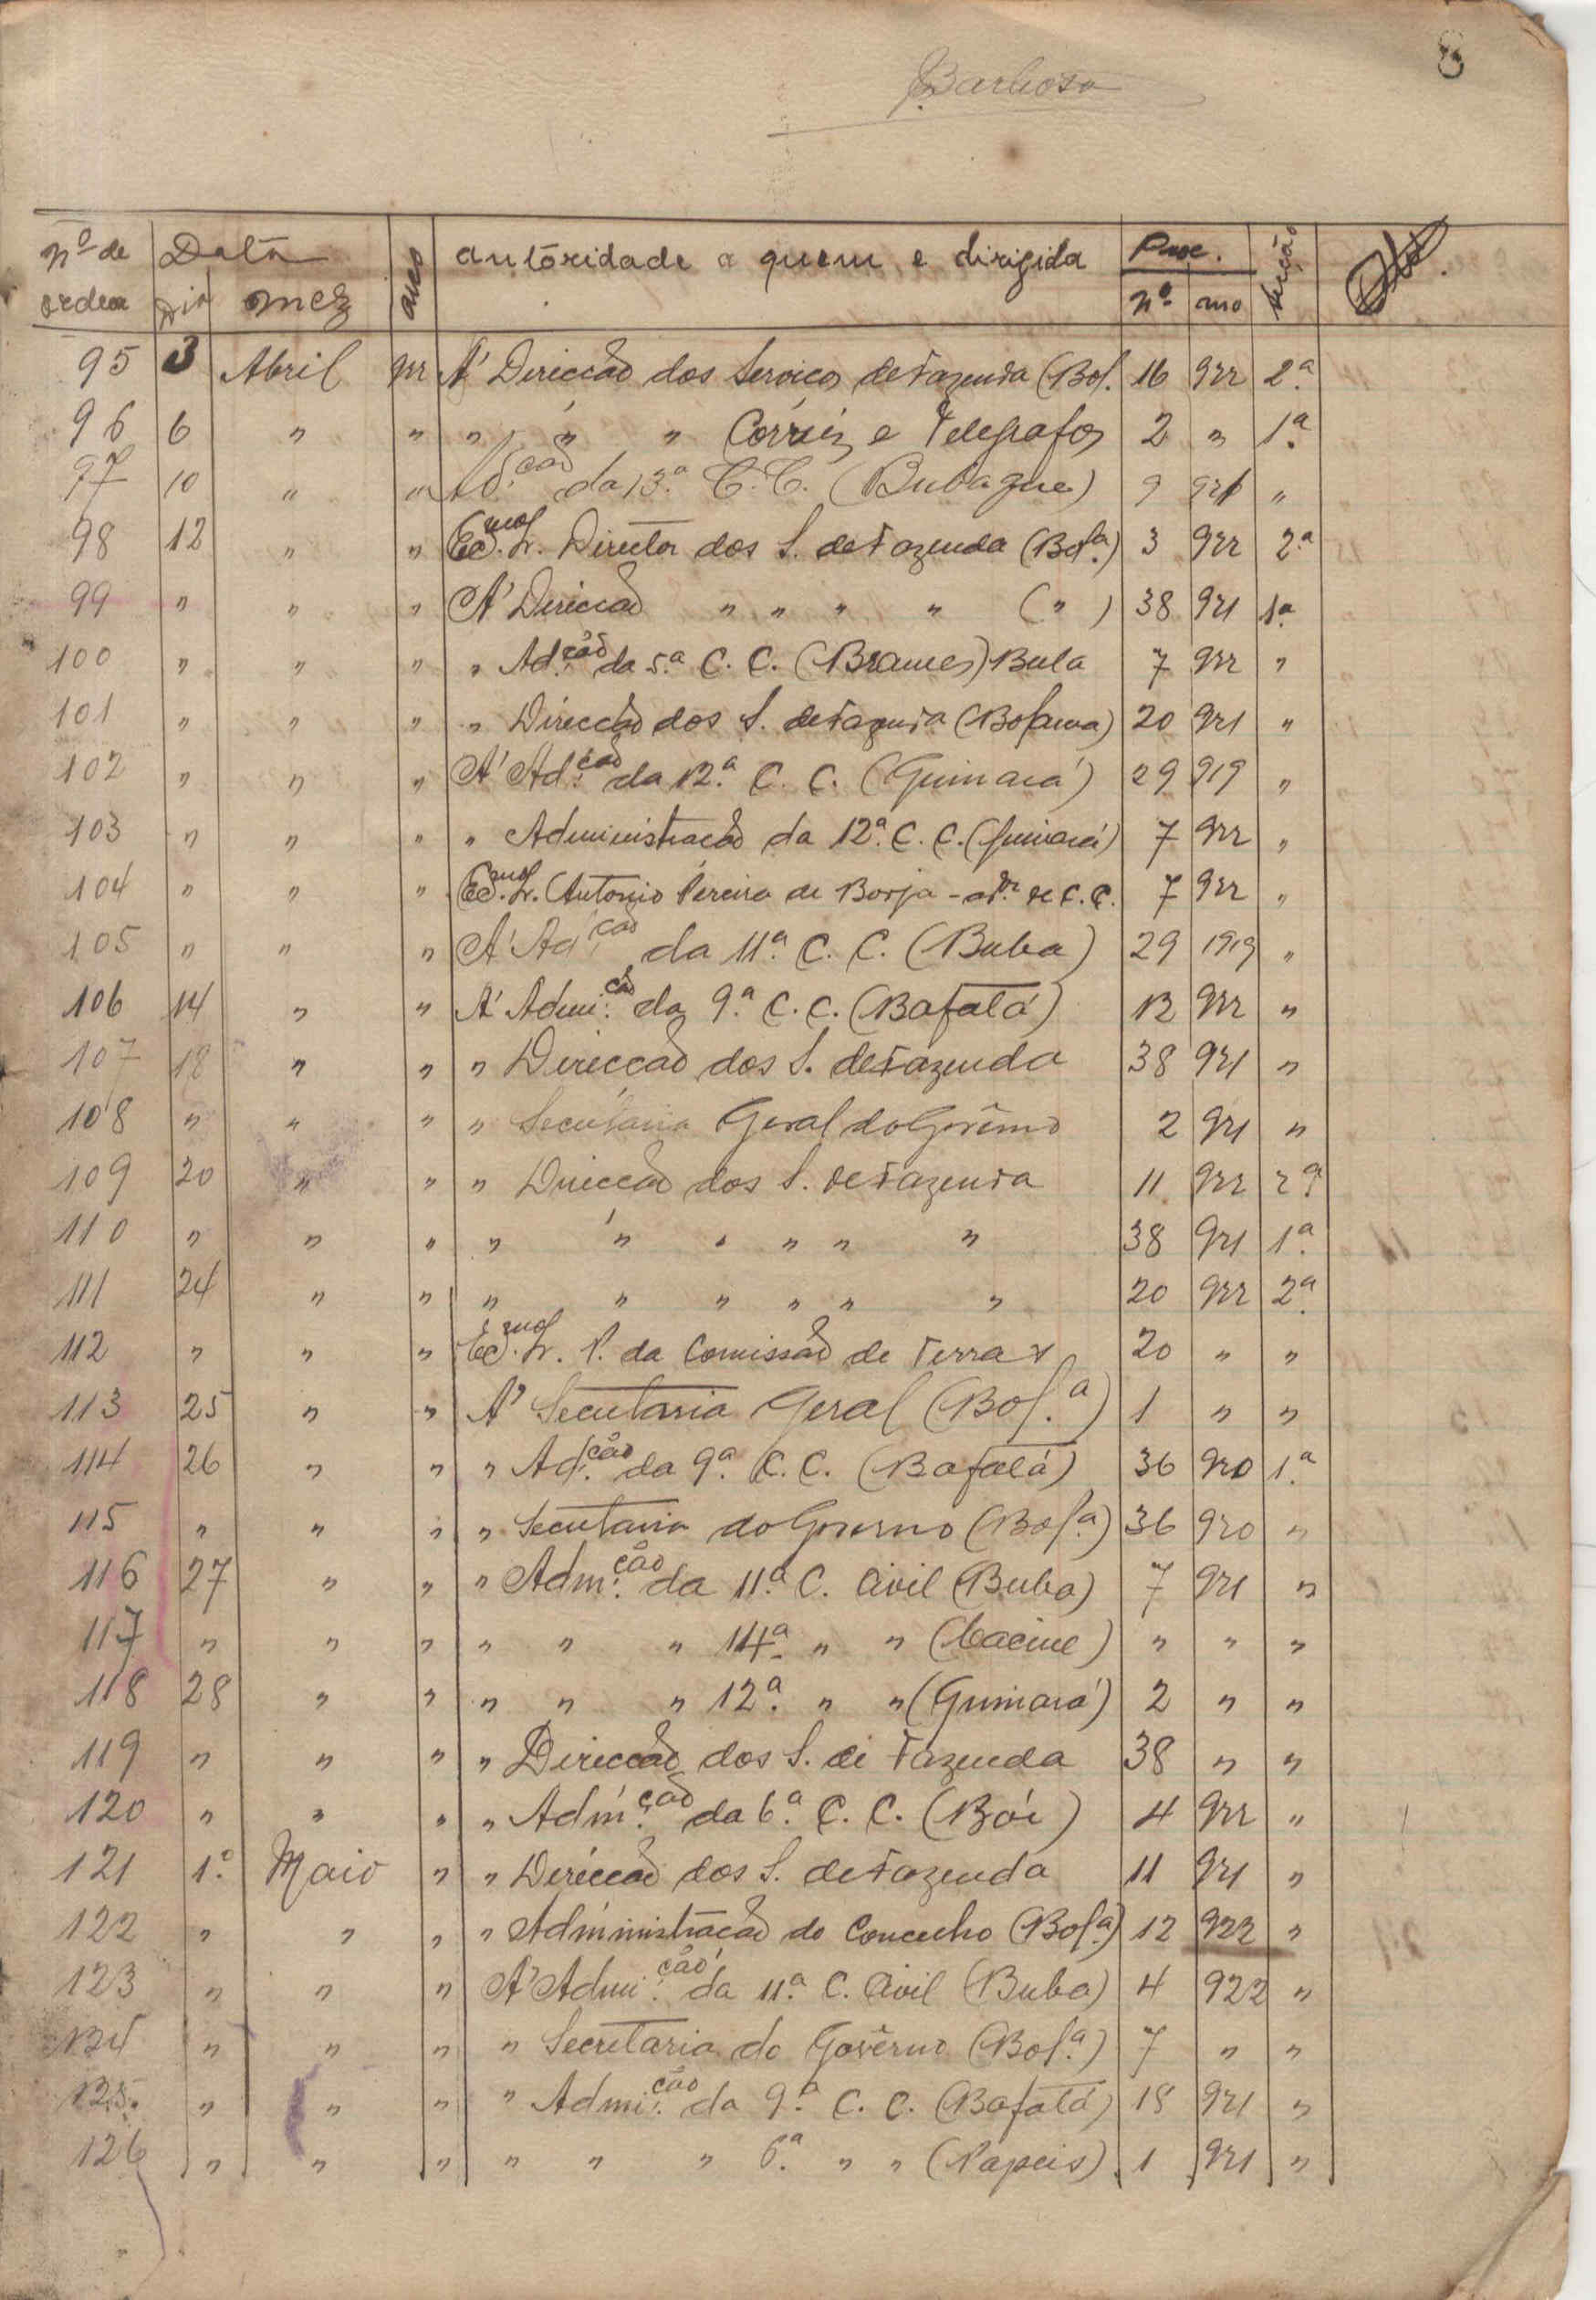 8
Barbosa
Nº de ordem Data Dia mez ano autoridade a quem e dirigida Proc. nº ano secção
95 3 Abril 922 Á Direcção dos Serviços de Fazenda (Bol. 16 922 2ª
96 6 " " " " " Corréis e Telegrafos 2 " 1ª
97 10 " " " Ad.ção da 13.ª C. C. (Bubaque) 9 921 "
98 12 " " Ex.mo Sr. Director dos S. de Fazenda (Bol.ª) 3 922 2ª
99 " " " Á Direcção " " " " ( " ) 38 921 1ª
100 " " " " Ad.ção da 5.ª C. C. (Brames) Bula 7 922 "
101 " " " " Direcção dos S. de Fazenda (Bolama) 20 921 "
102 " " " Á Ad.ção da 12.ª C. C. (Guinará) 29 919 "
103 " " " " Administração da 12.ª C. C. (Guinará) 7 922 "
104 " " " Ex.mo Sr. Antonio Pereira de Borja - ad.or de C. C. 7 922 "
105 " " " Á Ad.ção da 11.ª C. C. (Buba) 29 1919 "
106 14 " " Á Admi.ção da 9.ª C. C. (Bafatá) 12 922 "
107 18 " " " Direcção dos S. de Fazenda 38 921 "
108 " " " " Secretaria Geral do Govêrno 2 921 "
109 20 " " " Direcção dos S. de Fazenda 11 922 2ª
110 " " " " " " " " " 38 921 1ª
111 24 " " " " " " " " 20 922 2ª
112 " " " Ex.mo Sr. P. da Comissão de Terras 20 " "
113 25 " " Á Secretaria Geral (Bol.ª) 1 " "
114 26 " " " Ad.ção da 9.ª C. C. (Bafatá) 36 920 1.ª
115 " " " " Secretaria do Governo (Bol.ª) 36 920 "
116 27 " " " Adm.ção da 11.ª C. Civil (Buba) 7 921 "
117 " " " " " " 14ª " " (Cacine) " " "
118 28 " " " " " 12ª. " " (Guinará) 2 " "
119 " " " " Direcção dos S. de Fazenda 38 " "
120 " " " " Adm.ção da 6.ª C. C. (Bói) 4 922 "
121 1.º Maio " " Direcção dos S. de Fazenda 11 921 "
122 " " " " Administração do Concelho (Bol.ª) 12 922 "
123 " " " Á Admi.ção da 11.ª C. Civil (Buba) 4 922 "
124 " " " " Secretaria do Govêrno (Bol.ª) 7 " "
125 " " " " Admi.ção da 9.ª C. C. (Bafatá) 18 921 "
126 " " " " " " 6.ª " " (Papeis) 1 921 "